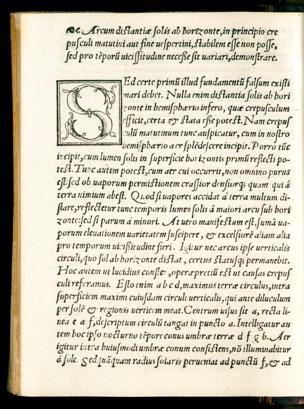 Arcum distantiæ solis ab horizonte, in principio cre
pusculi matutini aut fine uespertini, stabilem esse non posse,
sed pro tẽporũ uicissitudine necesse sit uariari, demonstrare.
SEd certe primũ illud fundamentũ falsum existi
mari debet. Nulla enim distantia solis ab hori
zonte in hemisphærio infero, quæ crepusculum
efficit, certa & stata esse potest. Nam crepus
culũ matutinum tunc auspicatur, cum in nostro
hemisphærio aer splẽdescere incipit. Porro tũc
incipit, cum lumen solis in superficie horizontis primũ reflecti po-
test. Tunc autem potest, cum aer cui occurrit, non omnino purus
est: sed ob uaporum permistionem crassior densiorq; quam qui á
terra nimium abest. Quod si uapores accidat á terra multum di-
stare, reflectetur tunc temporis lumen solis á maiori arcu sub hori
zonte: sed si parum á minori. At uero manifestum est, sumũ ua-
porum eleuationem uarietatem suscipere, & excelsiorẽ aliam alia
pro temporum uicissitudine fieri. Igitur nec arcus ipse uerticalis
circuli, quo sol ab horizonte distat, certus statusq; permanebit.
Hoc autem ut lucidius constet, operæpretiũ est ut causas crepus
culi referamus. Esto enim a b c d, maximus terræ circulus, intra
superficiem maximi cuiusdam circuli uerticalis, qui ante diluculum
per solẽ & regionis uerticem meat. Centrum uisus sit a, recta li-
nea e a f, descriptum circulũ tangat in puncto a. Intelligatur au
tem hoc ipso nocturno tẽpore conus umbræ terræ d f g b. Aer
igitur intra huiusmodi umbræ conum consistens, nõ illuminabitur
á sole. Sed quãquam radius solaris perueniat ad punctũ f, & ad